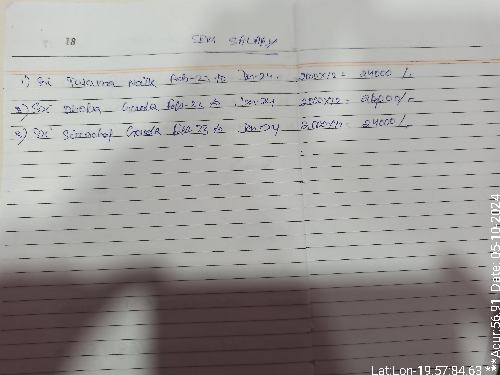 18
SEM SALARY
1) Sri Naik Feb-23 to Jan-24. 2000x12 = 24000/-
2) Sri Gouda Feb-23 to Jan-24 2000x12 = 24000/-
3) Sri Gouda Feb-23 to Jan-24 2000x12 = 24000/-
Lat:Lon-19.57:84.63 ***Acur:56.91 Date: 05-10-2024